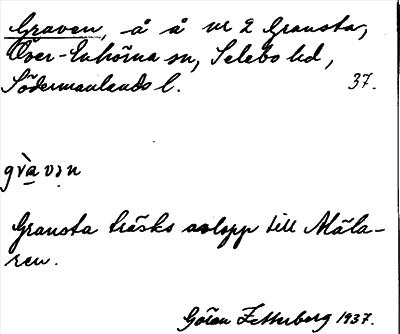 Graven, å å nr 2 Gransta,
Över-Enhörna sn, Selebo hd,
Södermanlands l. 37.
grà vən
Gransta träsks avlopp till Mäla-
ren.
Göran Zetterberg 1937.